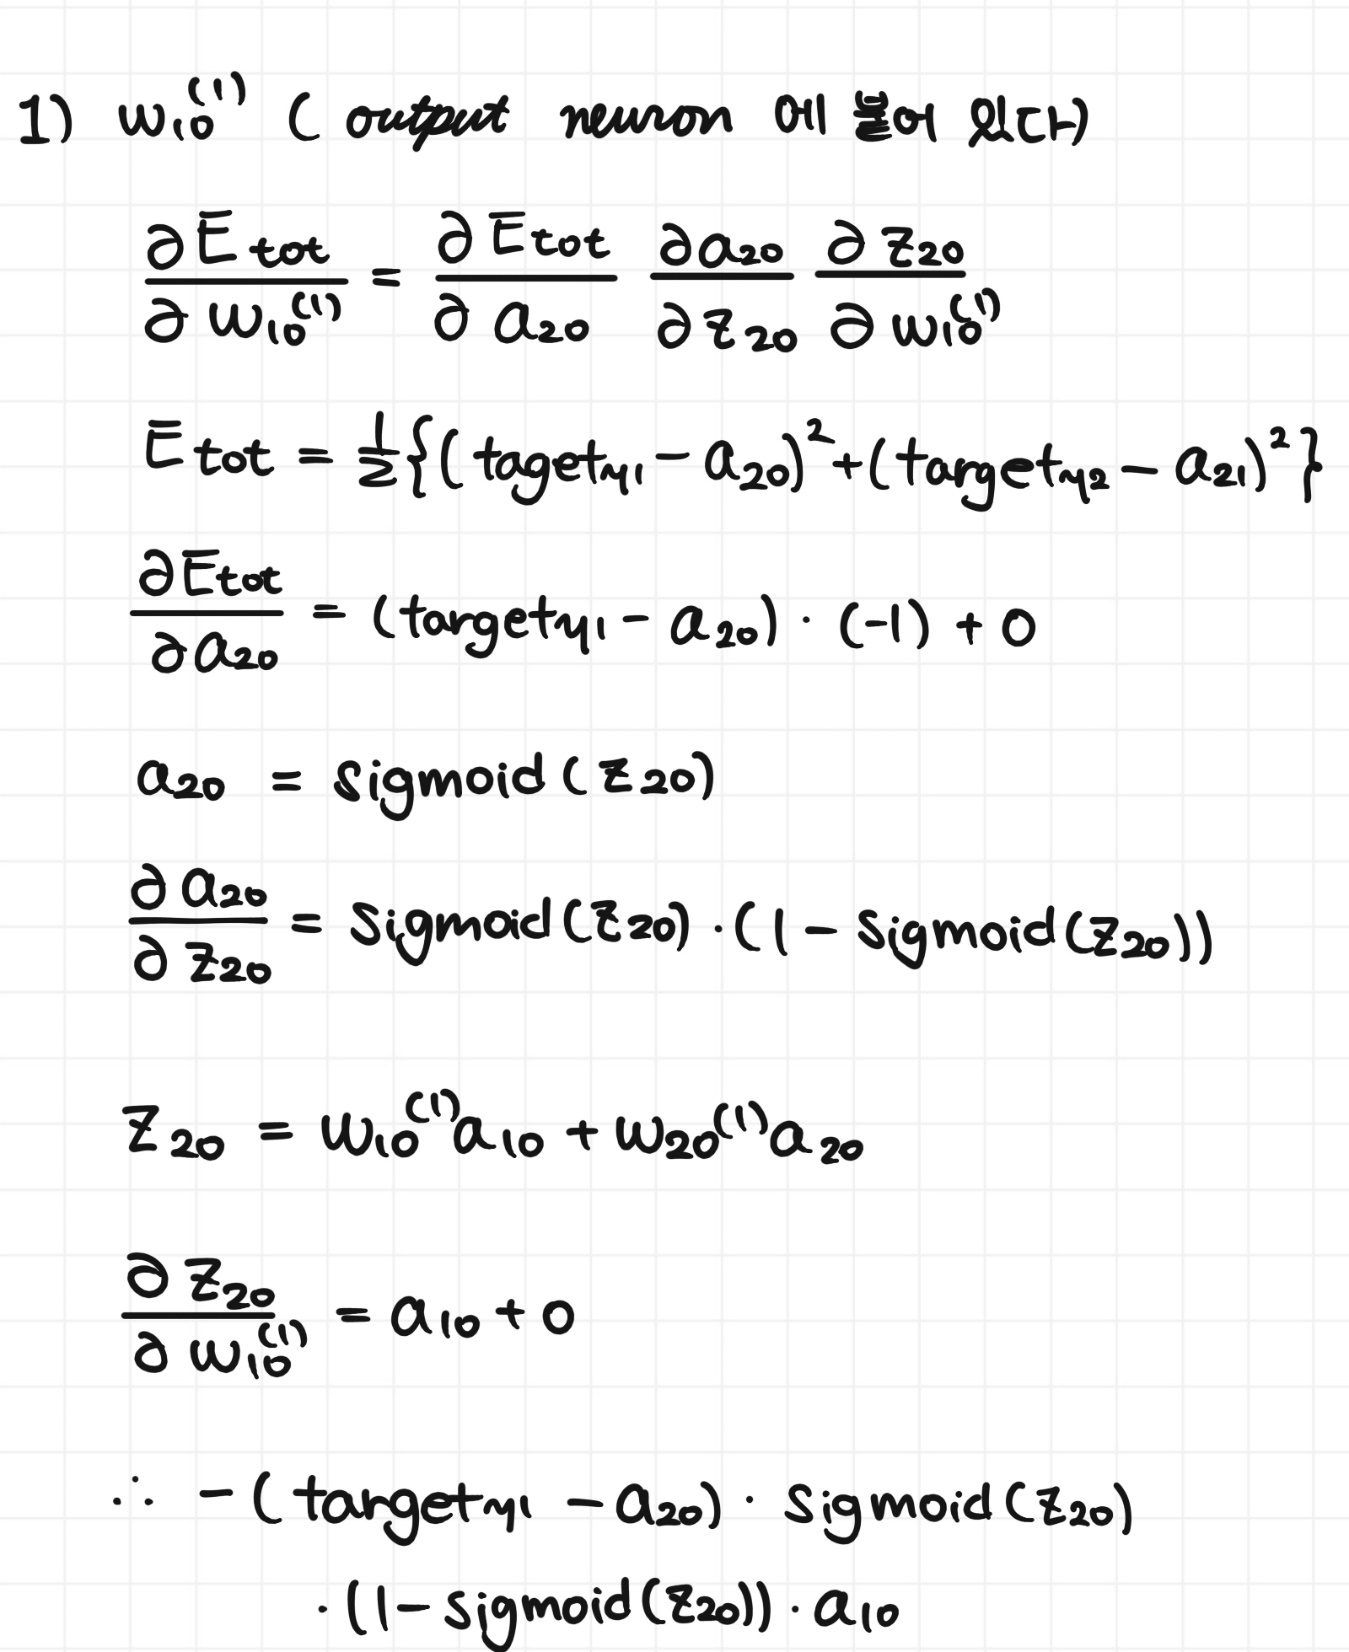 1) w₁₀⁽¹⁾ ( output neuron 에 붙어 있다)
∂E tot / ∂w₁₀⁽¹⁾ = ∂E tot / ∂a₂₀ ∂a₂₀ / ∂z₂₀ ∂z₂₀ / ∂w₁₀⁽¹⁾
E tot = 1/2 {( taget y1 − a₂₀)² + (target y2 − a₂₁)²}
∂E tot / ∂a₂₀ = (target y1 − a₂₀) · (-1) + 0
a₂₀ = sigmoid (z₂₀)
∂a₂₀ / ∂z₂₀ = sigmoid(z₂₀) · (1 − sigmoid(z₂₀))
z₂₀ = w₁₀⁽¹⁾a₁₀ + w₂₀⁽¹⁾a₂₀
∂z₂₀ / ∂w₁₀⁽¹⁾ = a₁₀ + 0
∴ −(target y1 − a₂₀) · sigmoid (z₂₀)
· (1 − sigmoid (z₂₀)) · a₁₀